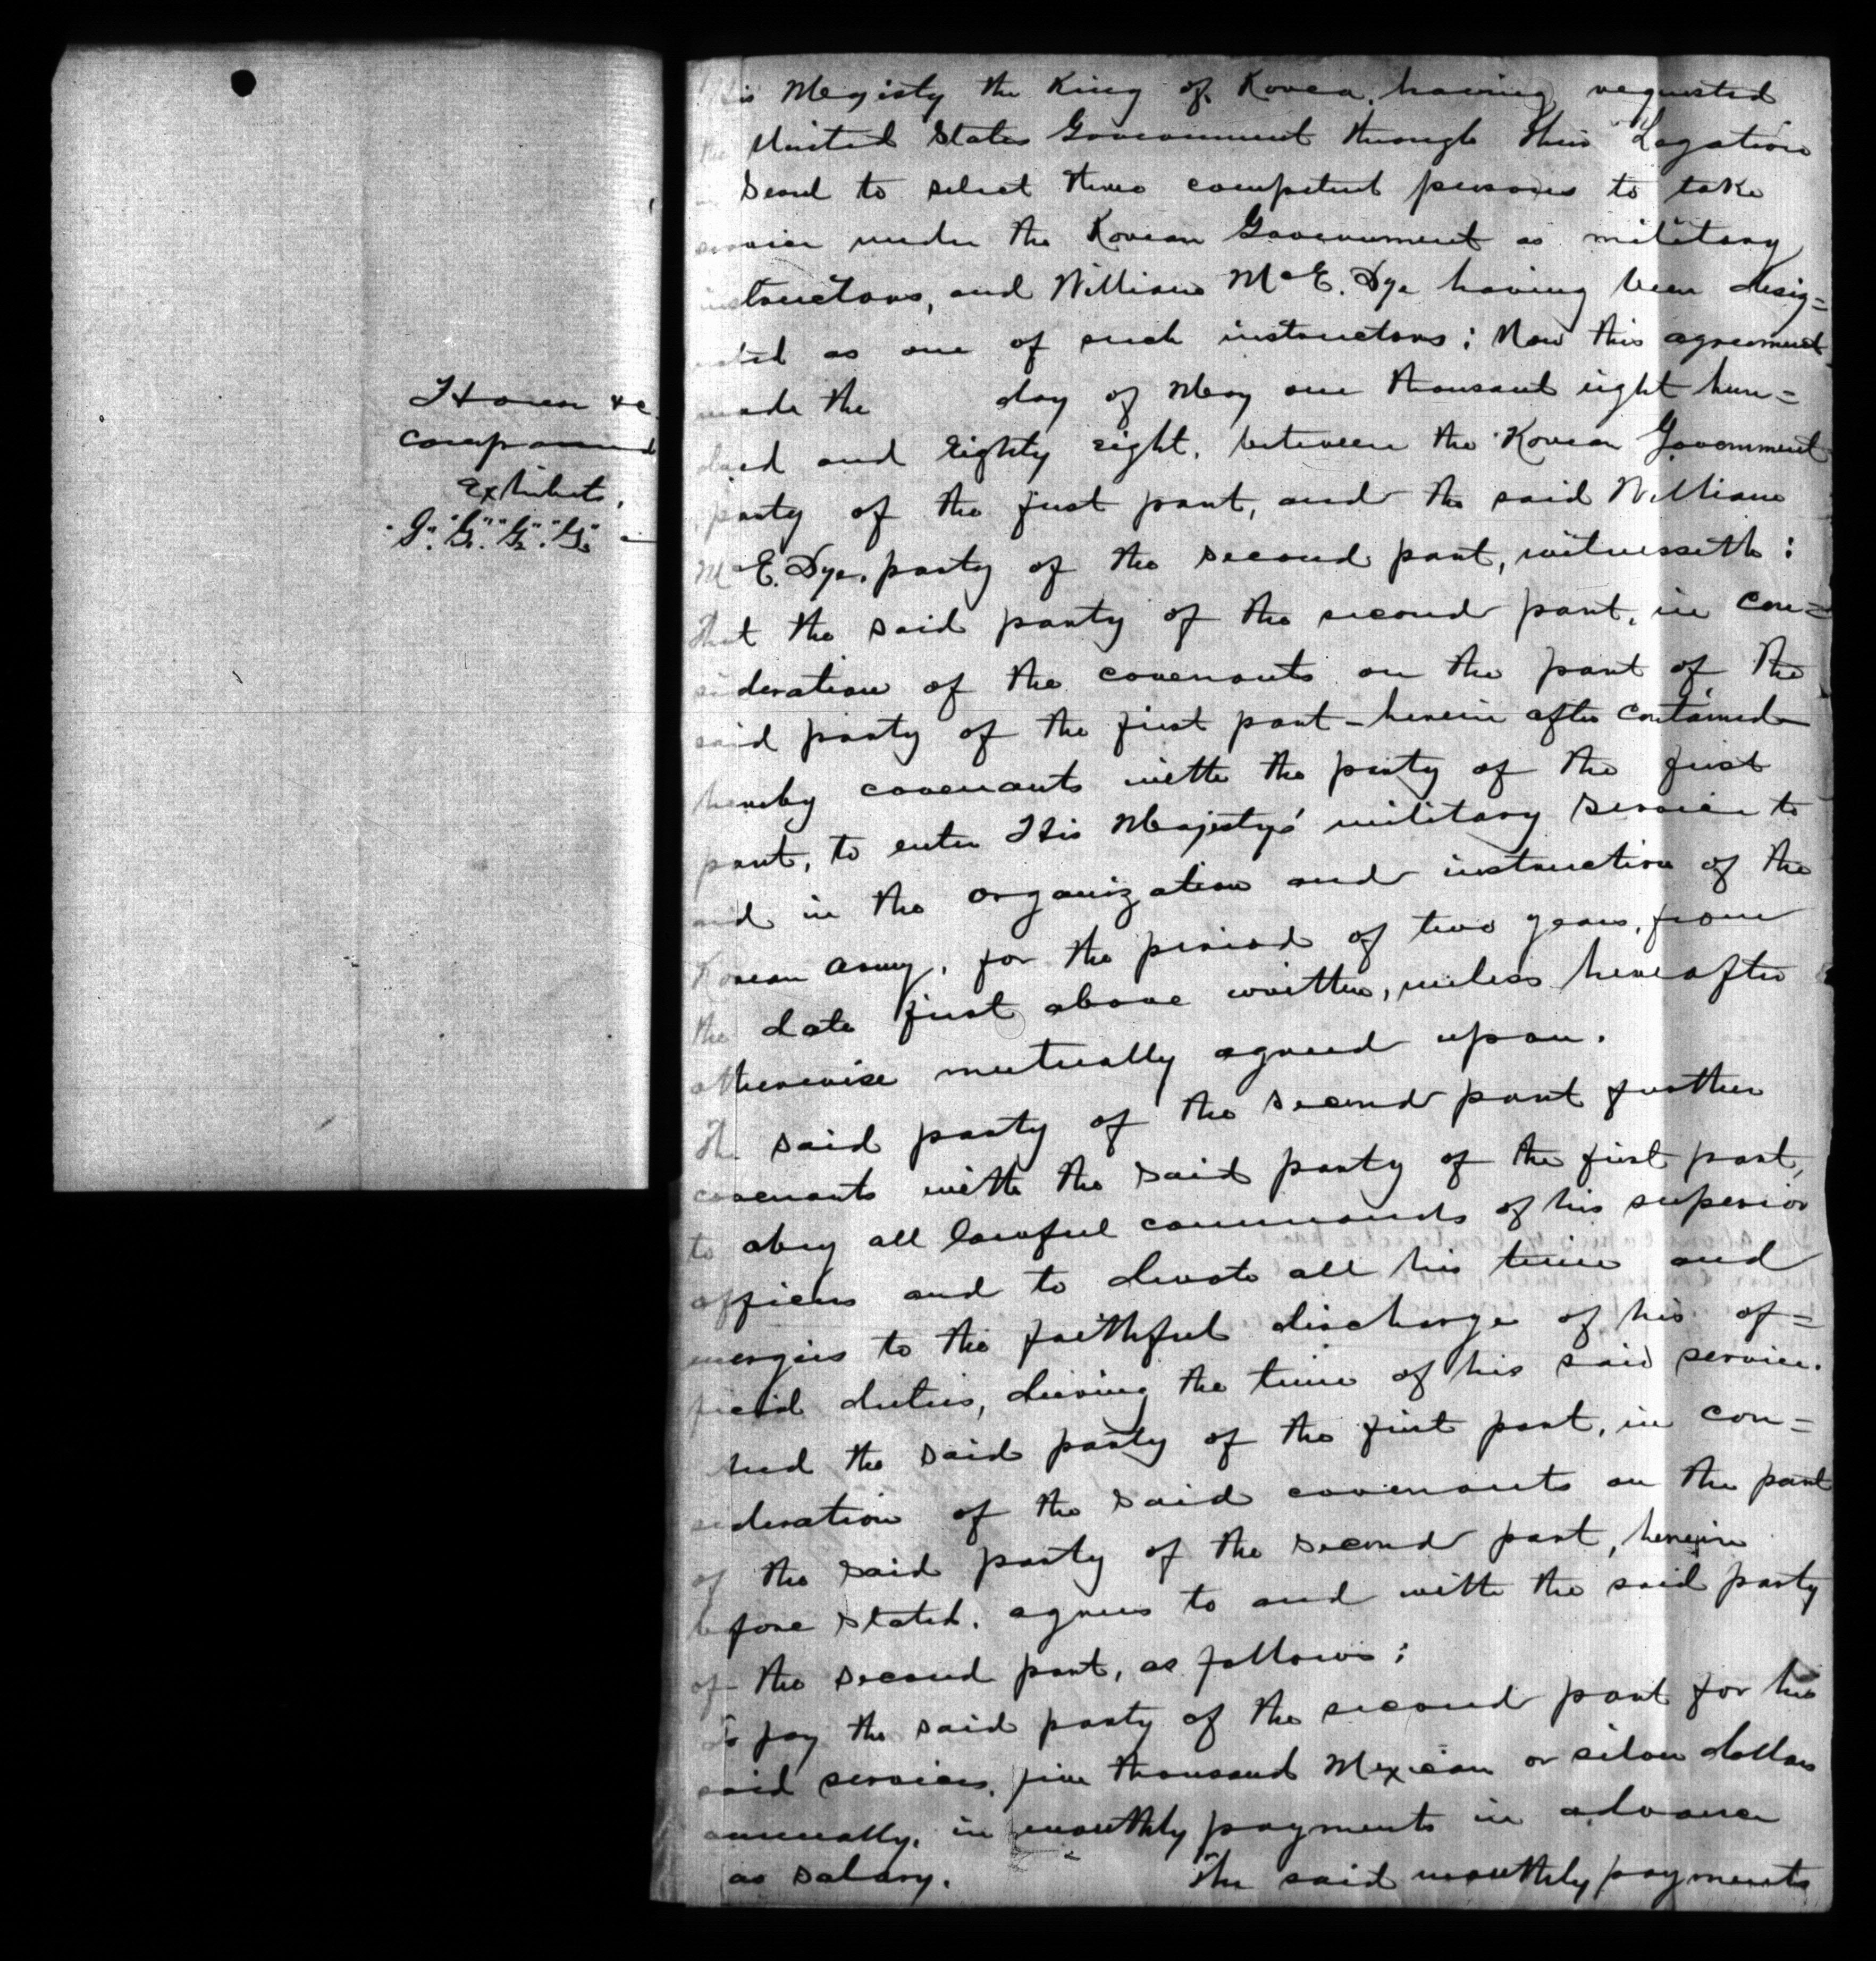 I have
compared
Exhibits,
"G". "G1". "G2". "G3"
His Majesty the King of Korea, having requested
the United States Government through their Legation
Seoul to select three competent persons to take
service under the Korean Government as military
instructors, and William McE. Dye having been desig=
nated as one of such instructors; Now this agreement
made the day of May one thousand eight hun=
dred and Eighty eight, between the Korean Government
party of the first part, and the said William
McE. Dye, party of the second part, witnesseth:
That the said party of the second part, in con=
sideration of the covenants on the part of the
said party of the first part - herein after contained
hereby covenants with the party of the first
part, to enter His Majesty's military service to
aid in the organization and instruction of the
Korean Army, for the period of two years, from
the date first above written, unless hereafter
otherwise mutually agreed upon.
The said party of the second part further
covenants with the said party of the first part,
to obey all lawful commands of his superior
officers and to devote all his time and
energies to the faithful discharge of his of=
ficial duties, during the time of his said service.
And the said party of the first part, in con=
sideration of the said covenants on the part
of the said party of the second part, herein
before stated, agrees to and with the said party
of the second part, as follows:
To pay the said party of the second part for his
said services, five thousand Mexican or silver dollars
annually, in monthly payments in advance
as salary. The said monthly payments